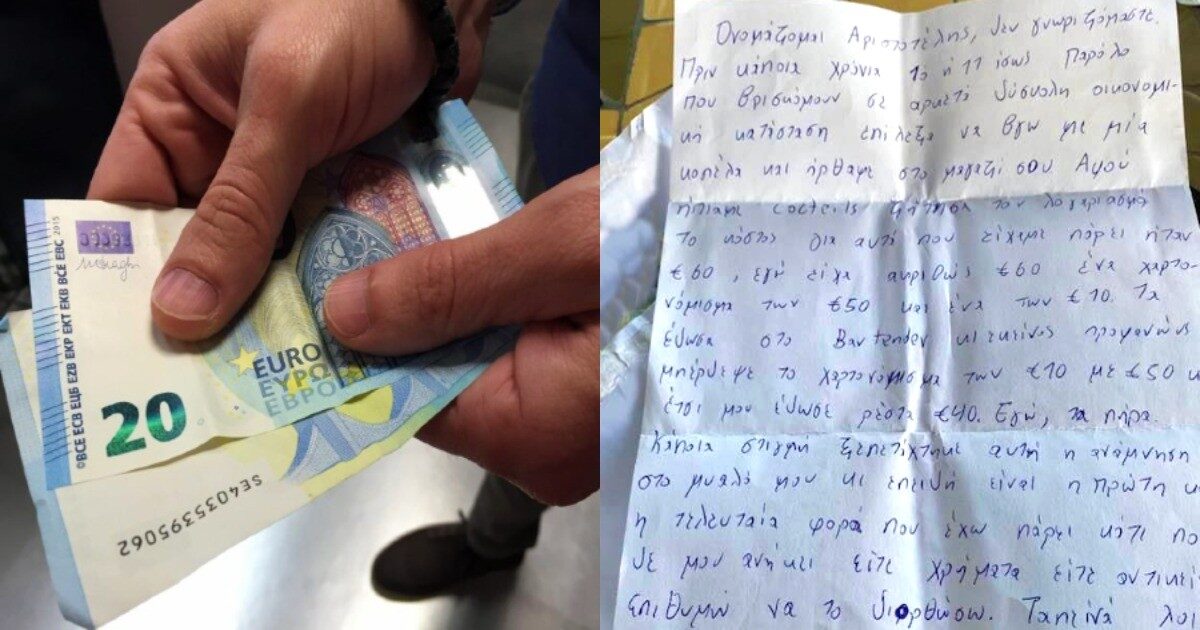 BCE ECB EЦБ EZB EKP EKT EKB BČE EBC 2015
20
EURO
ΕΥΡΩ
ЕВРО
SE4035395062
Ονομάζομαι Αριστοτέλης, δεν γνωριζόμαστε.
Πριν κάποια χρόνια 10 ή 11 ίσως Παρόλο
που βρισκόμουν σε αρκετά δύσκολη οικονομι-
κή κατάσταση επέλεξα να βγω με μία
κοπέλα και ήρθαμε στο μαγαζί σου Αφού
ήπιαμε cocteils ζήτησα τον λογαριασμό
Το κόστος για αυτά που είχαμε πάρει ήταν
€60, εγώ είχα ακριβώς €60 ένα χαρτο-
νόμισμα των €50 και ένα των €10. Τα
έδωσα στο Bartender κι εκείνος προφανώς
μπέρδεψε το χαρτονόμισμα των €10 με €50 κ
έτσι μου έδωσε ρέστα €40. Εγώ, τα πήρα
Κάποια στιγμή ξεπετάχτηκε αυτή η ανάμνηση
στο μυαλό μου κι επειδή είναι η πρώτη κ
η τελευταία φορά που έχω πάρει κάτι πο
δε μου ανήκει είτε χρήματα είτε αντικεί
Επιθυμώ να το διορθώσω. Ταπεινά λοι